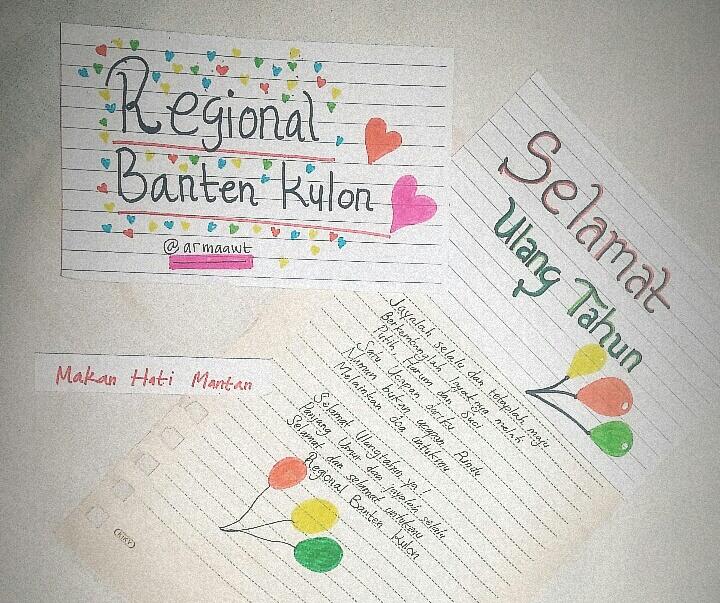 Regional
Banten Kulon
@armaawt
Selamat
Ulang Tahun
Makan Hati Mantan
Jayalah selalu dan tetaplah maju
Berkembanglah layaknya melati
Putih, Harum dan Suci
Satu Ucapan dariku
Namun bukan ucapan Rindu
Melainkan doa untukmu
Selamat Ulangtahun ya!
Panjang Umur dan jayalah selalu
Selamat dan selamat untukmu
Regional Banten Kulon
KIKY